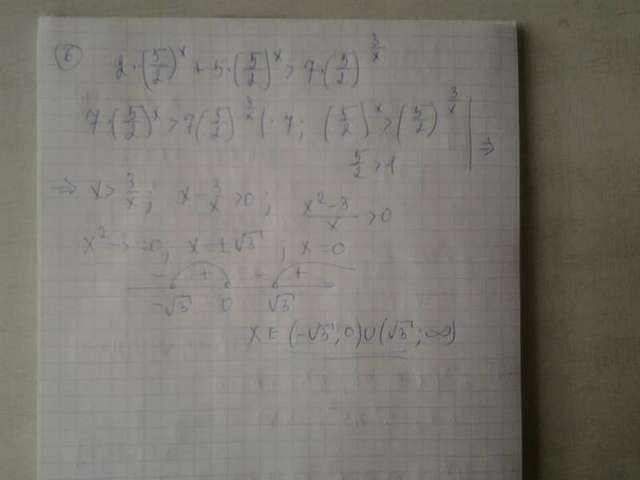 6
2·(5/2)^x + 5·(5/2)^x > 7·(5/2)^(3/x)
7·(5/2)^x > 7(5/2)^(3/x) |: 7; (5/2)^x > (5/2)^(3/x) | ⇒
5/2 > 1
⇒ x > 3/x; x - 3/x > 0; (x² - 3)/x > 0
x² - 3 = 0; x = ±√3; x = 0
- + - +
-√3 0 √3
x ∈ (-√3; 0) ∪ (√3; ∞)